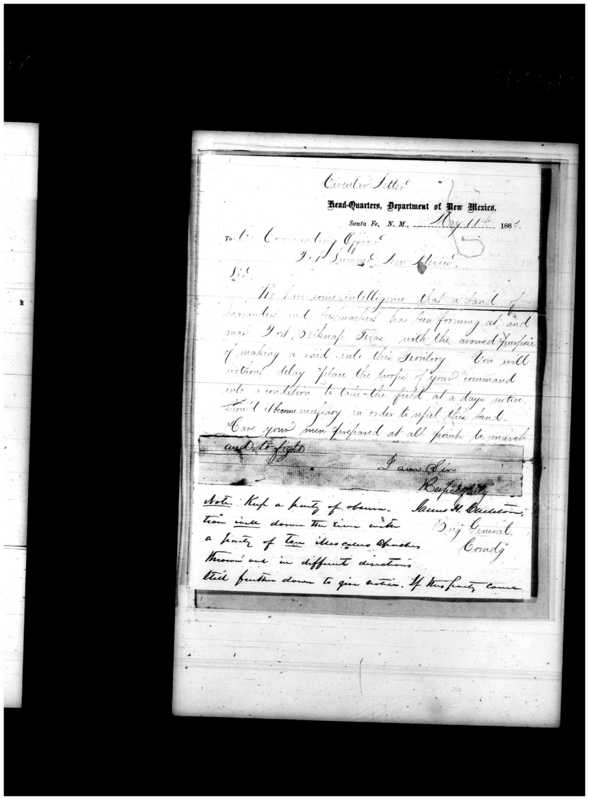 Circular Letter
Head-Quarters, Department of New Mexico,
Santa Fe, N. M., May 11th 186
To the Commanding Officer
Fort Sumner New Mexico,
Sir
We have some intelligence that a band of
and has been forming at and
near Fort Belknap Texas with the avowed purpose
of making a raid into this Territory You will
without delay place the troops of your command
into condition to take the field at a days notice
should it become necessary in order to repel this band.
Have your men prepared at all points to march
and to fight
I am Sir
Respectfully
James H. Carleton
Brig General
Comdg
Note. Keep a party of observa-
tion well down the river with
a party of ten Mescalero Apaches
thrown out in different directions
still further down to give notice. If this party come